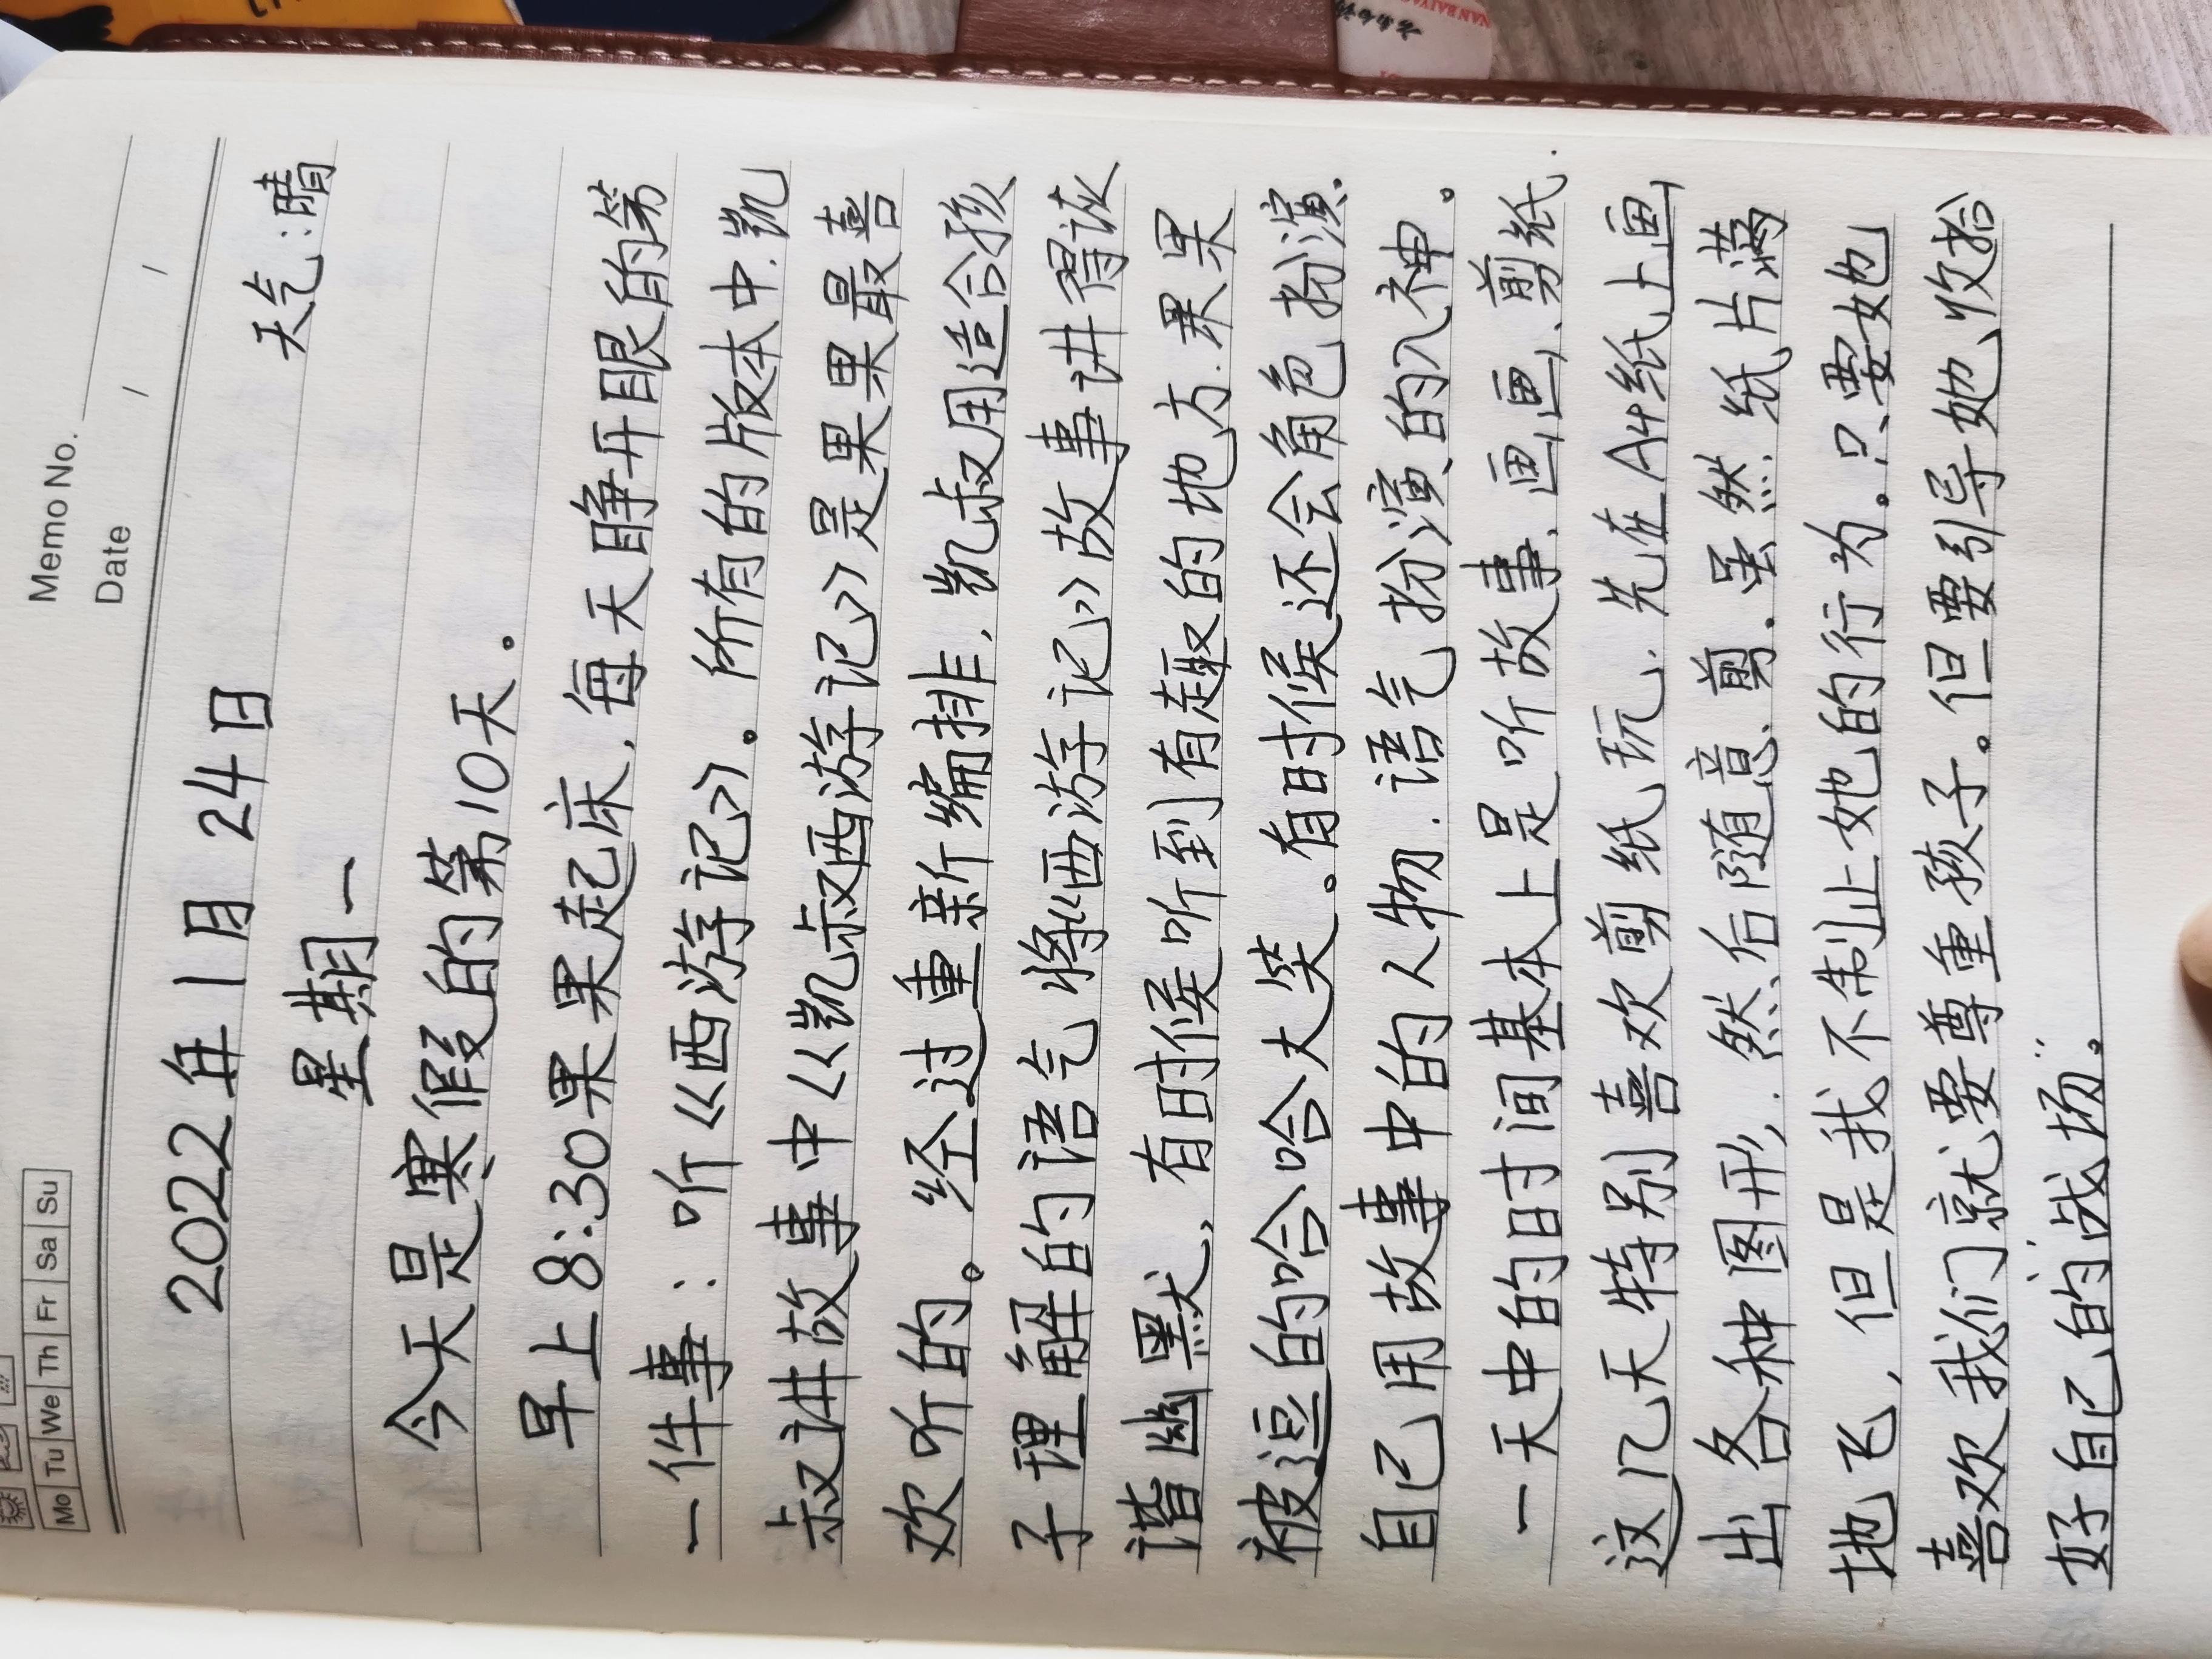 Memo No.
Date / /
Mo Tu We Th Fr Sa Su
2022年1月24日
天气:晴
星期一
今天是寒假的第10天。
早上8:30果果起床,每天睁开眼的第
一件事:听《西游记》。所有的版本中,凯
叔讲故事中《凯叔西游记》是果果最喜
欢听的。经过重新编排,凯叔用适合孩
子理解的语气将《西游记》故事讲得诙
谐幽默,有时候听到有趣的地方,果果
被逗的哈哈大笑。有时候还会角色扮演,
自己用故事中的人物、语气扮演的入神。
一天中的时间基本上是听故事、画画、剪纸.
这几天特别喜欢剪纸玩,先在A4纸上画
出各种图形,然后随意剪,虽然纸片满
地飞,但是我不制止她的行为。只要她
喜欢我们就要尊重孩子。但要引导她收拾
好自己的"战场"。